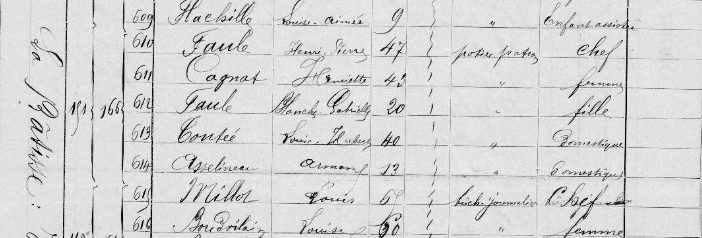 609 Louise-aimée 9 " Enfant assisté
610 Faule Henri Pierre 47 potier patron chef
611 Cagnat Henriette 43 " femme
612 Faule Blanche Gabrielle 20 " fille
613 Contée Louis-Hubert 40 " Domestique
614 Asselineau Armand 13 " Domestique
615 Millot Louis 65 journalier Chef
616 Louise 60 " femme
La Bâtisse:
151 166